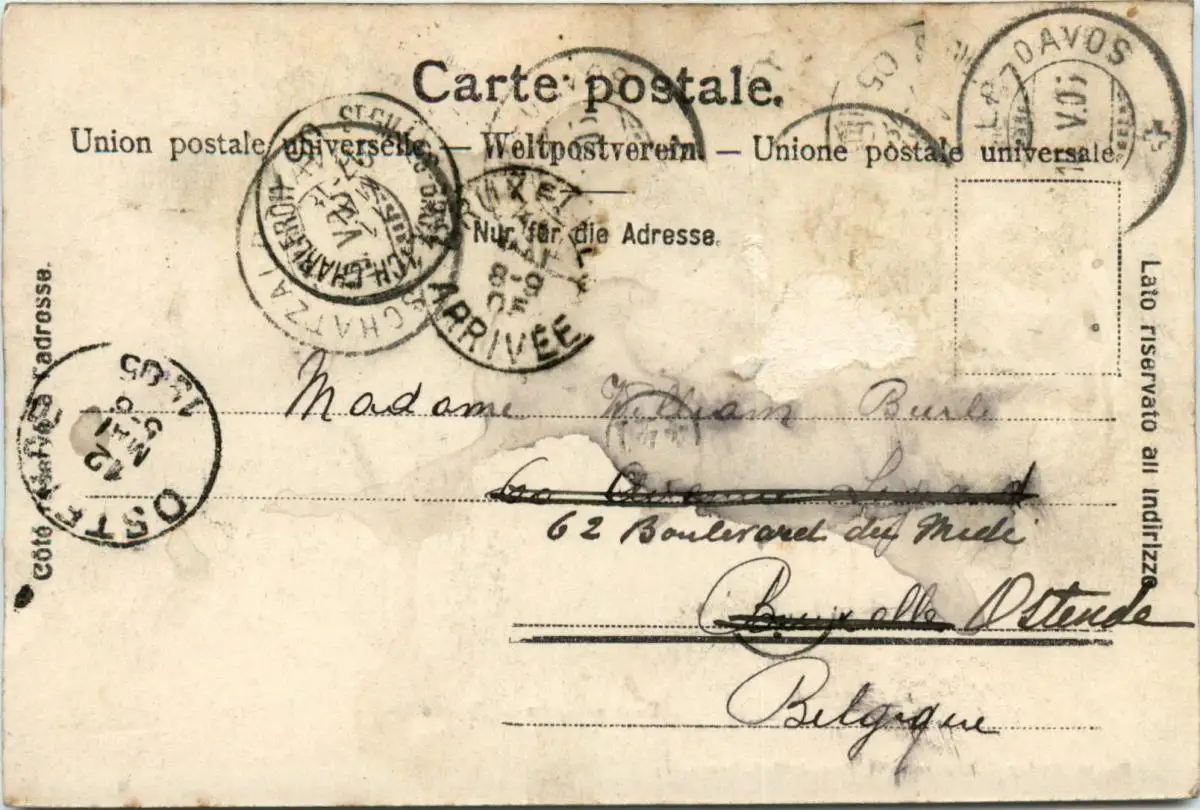 Carte postale.
Union postale universelle. — Weltpostverein. — Unione postale universale.
Nur für die Adresse.
Côté réservé à l'adresse.
Lato riservato all indirizzo
DAVOS
V.05
CHATZALP
ARRIVÉE
OSTE
12
MAI
1905
Madame William Burls
60 Avenue
62 Boulevard du Midi
Bruxelles Ostende
Belgique